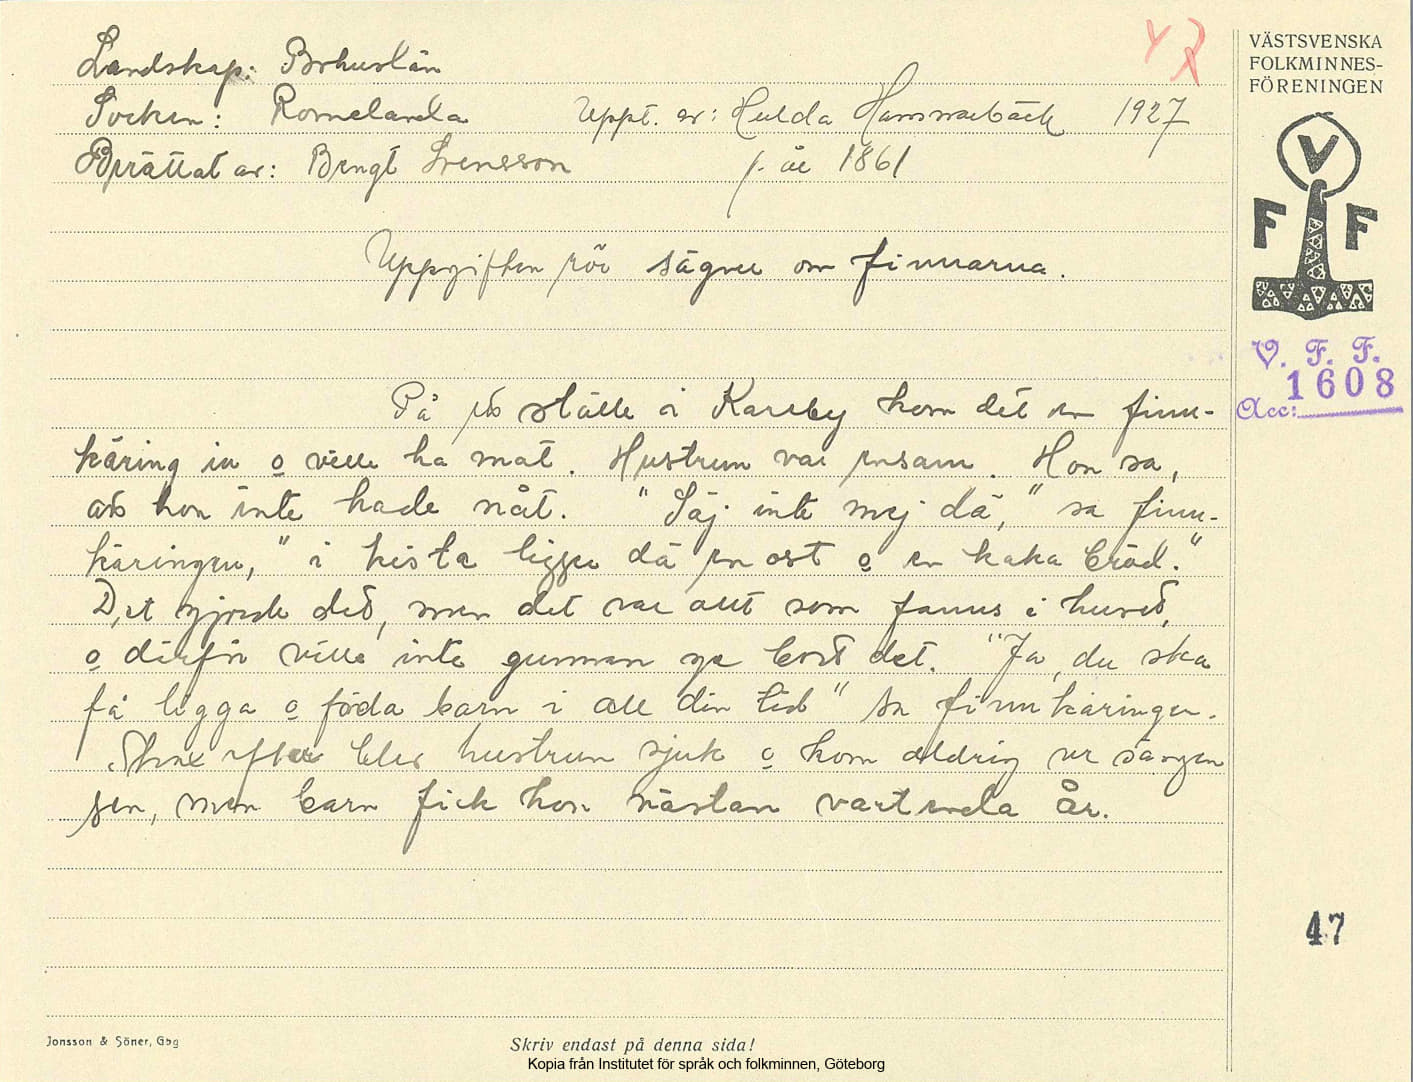 Landskap: Bohuslän
Socken: Romelanda Uppt. av: Hulda Hammarbäck 1927
Berättat av: Bengt Svensson f. år 1861
VÄSTSVENSKA
FOLKMINNES-
FÖRENINGEN
V
F F
Uppgiften rör sägner om finnarna.
V. F. F.
1608
Acc:
På ett ställe i Kareby kom det en finn-
käring in o ville ha mat. Hustrun var ensam. Hon sa,
att hon inte hade nåt. "Säj inte mej dä," sa finn-
käringen, "i kista ligger dä en ost o en kaka bröd."
Det gjorde det, men det var allt som fanns i huset,
o därför ville inte gumman ge bort det. "Ja, du ska
få ligga o föda barn i all din tid" sa finnkäringen.
Strax efter blev hustrun sjuk o kom aldrig ur sängen
sen, men barn fick hon nästan vartenda år.
47
Jonsson & Söner, Gbg
Skriv endast på denna sida!
Kopia från Institutet för språk och folkminnen, Göteborg